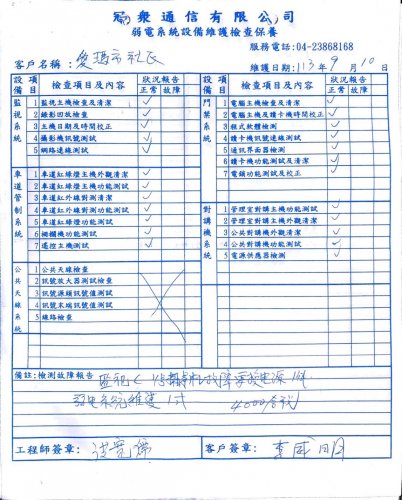 冠衆通信有限公司
弱電系統設備維護檢查保養
服務電話:04-23868168
客戶名稱: 愛瑪市社區
維護日期:113年9月10日
設備 項目 檢查項目及內容 狀況報告 正常 故障
監視系統
1 監視主機檢查及清潔 ✓
2 錄影回放檢查 ✓
3 主機日期及時間校正 ✓
4 攝影機訊號測試 ✓
5 網路連線測試 ✓
車道管制系統
1 車道紅綠燈主機外觀清潔 ✓
2 車道紅綠燈主機功能測試 ✓
3 車道紅外線對測清潔 ✓
4 車道紅外線對測功能測試 ✓
5 車道紅綠燈功能測試 ✓
6 柵欄機功能測試 ✓
7 遙控主機測試 ✓
公共天線系統
1 公共天線檢查
2 訊號放大器測試檢查
3 訊號源頭訊號值測試
4 訊號末端訊號值測試
5 線路檢查
設備 項目 檢查項目及內容 狀況報告 正常 故障
門禁系統
1 電腦主機檢查及清潔 ✓
2 電腦主機及讀卡機時間校正 ✓
3 程式軟體檢測 ✓
4 讀卡機訊號連線測試 ✓
5 通訊界面器檢測 ✓
6 讀卡機功能測試及清潔 ✓
7 電鎖功能測試及校正 ✓
對講機系統
1 管理室對講主機功能測試 ✓
2 管理室對講主機外觀清潔 ✓
3 公共對講機外觀清潔 ✓
4 公共對講機功能測試 ✓
5 電源供應器檢測 ✓
備註:檢測故障報告
監視
故障 電源
弱電系統維護 1式 4000
工程師簽章:
客戶簽章: